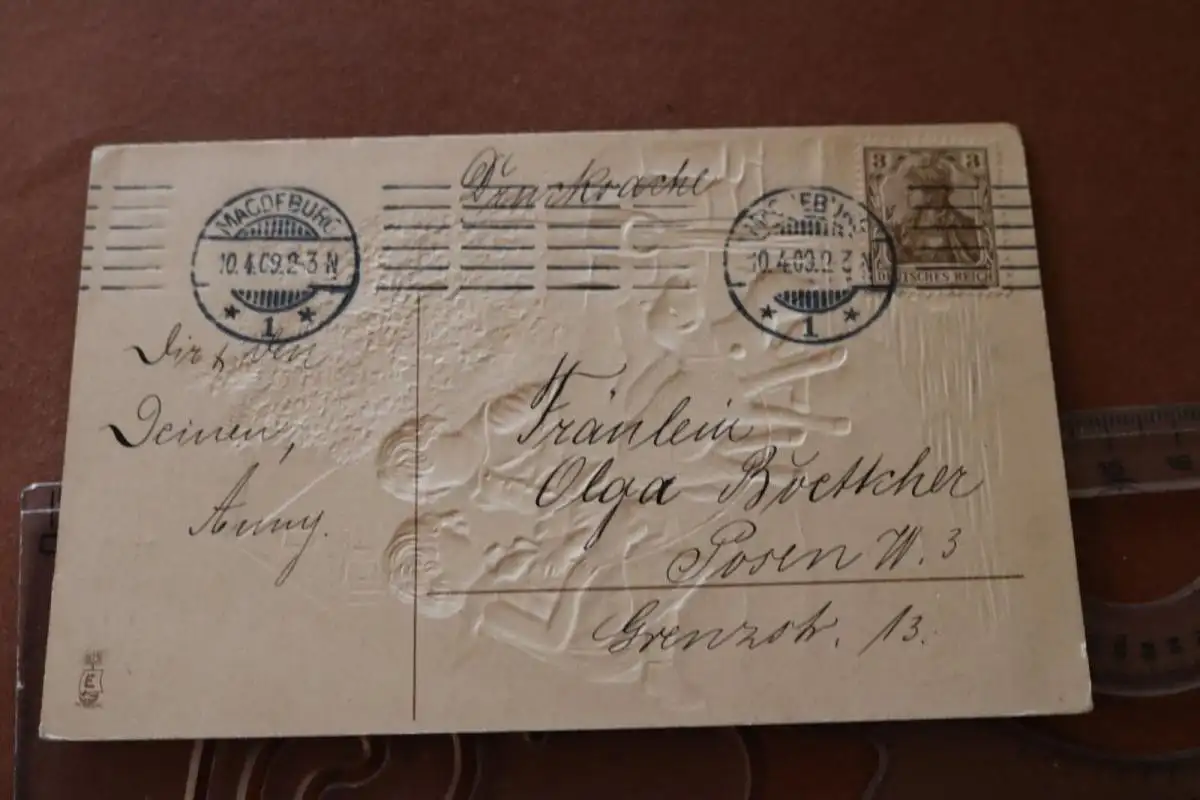 Drucksache
MAGDEBURG
10.4.09.2-3 N
* 1 *
MAGDEBURG
10.4.09.2-3 N
* 1 *
3 3
DEUTSCHES REICH
Dir & den
Deinen,
Anny.
Fräulein
Olga Boettcher
Posen W. 3
Grenzstr. 13.
E